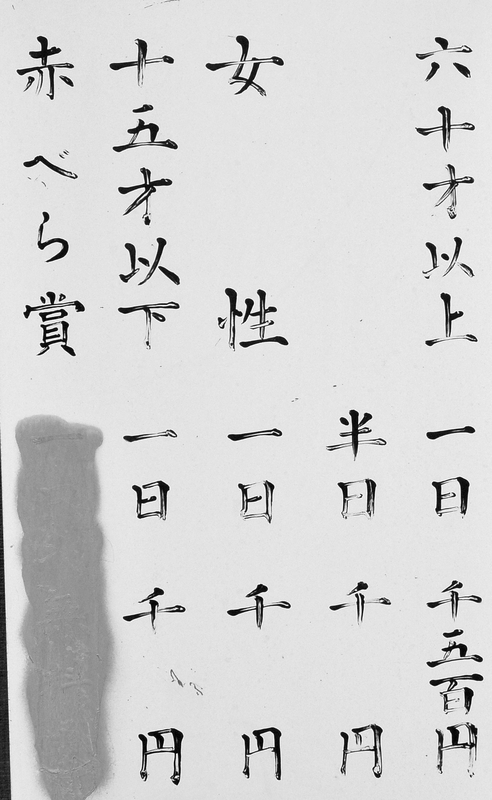 六十才以上 一日 千五百円
半日 千 円
女性 一日 千 円
十五才以下 一日 千 円
赤べら賞